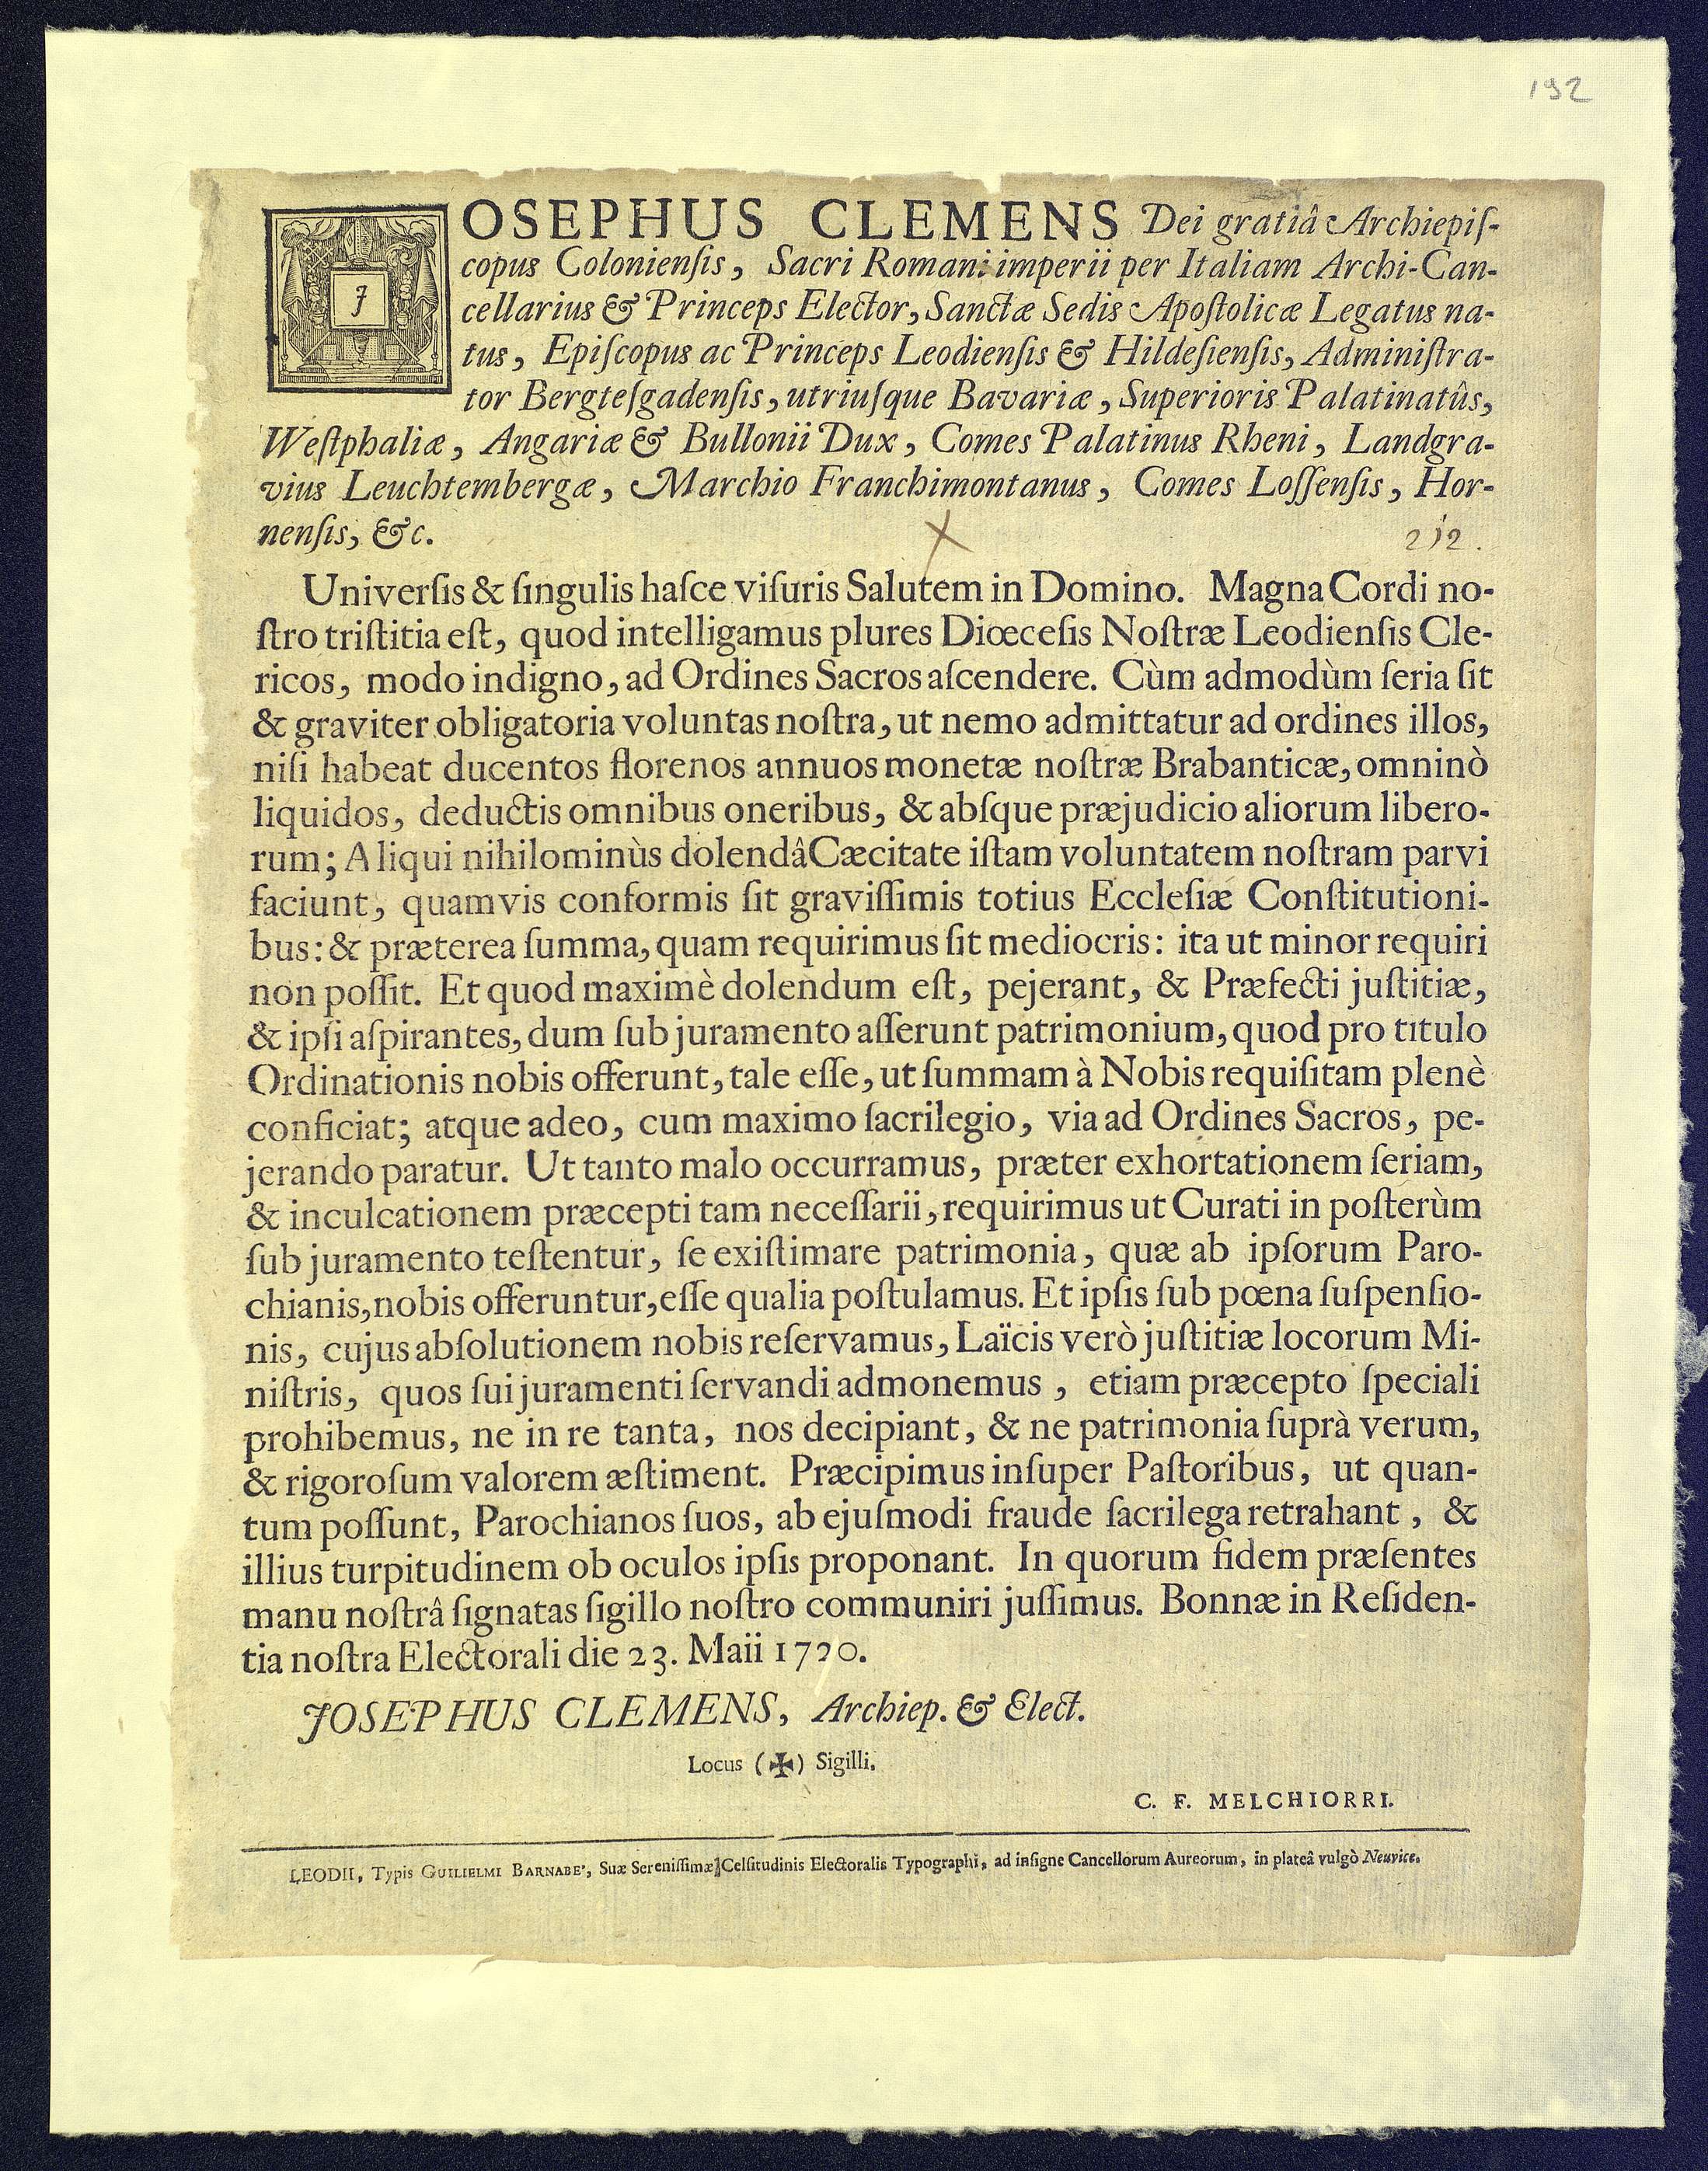 192
JOSEPHUS CLEMENS Dei gratiâ Archiepiſ-
copus Colonienſis, Sacri Romani imperii per Italiam Archi-Can-
cellarius & Princeps Elector, Sanctæ Sedis Apoſtolicæ Legatus na-
tus, Epiſcopus ac Princeps Leodienſis & Hildeſienſis, Adminiſtra-
tor Bergteſgadenſis, utriuſque Bavariæ, Superioris Palatinatûs,
Weſtphaliæ, Angariæ & Bullonii Dux, Comes Palatinus Rheni, Landgra-
vius Leuchtembergæ, Marchio Franchimontanus, Comes Loſſenſis, Hor-
nenſis, &c.
212.
Univerſis & ſingulis haſce viſuris Salutem in Domino. Magna Cordi no-
ſtro triſtitia eſt, quod intelligamus plures Diœceſis Noſtræ Leodienſis Cle-
ricos, modo indigno, ad Ordines Sacros aſcendere. Cùm admodùm ſeria ſit
& graviter obligatoria voluntas noſtra, ut nemo admittatur ad ordines illos,
niſi habeat ducentos florenos annuos monetæ noſtræ Brabanticæ, omninò
liquidos, deductis omnibus oneribus, & abſque præjudicio aliorum libero-
rum; Aliqui nihilominùs dolendâ Cæcitate iſtam voluntatem noſtram parvi
faciunt, quamvis conformis ſit graviſſimis totius Eccleſiæ Conſtitutioni-
bus: & præterea ſumma, quam requirimus ſit mediocris: ita ut minor requiri
non poſſit. Et quod maximè dolendum eſt, pejerant, & Præfecti juſtitiæ,
& ipſi aſpirantes, dum ſub juramento aſſerunt patrimonium, quod pro titulo
Ordinationis nobis offerunt, tale eſſe, ut ſummam à Nobis requiſitam plenè
conficiat; atque adeo, cum maximo ſacrilegio, via ad Ordines Sacros, pe-
jerando paratur. Ut tanto malo occurramus, præter exhortationem ſeriam,
& inculcationem præcepti tam neceſſarii, requirimus ut Curati in poſterùm
ſub juramento teſtentur, ſe exiſtimare patrimonia, quæ ab ipſorum Paro-
chianis, nobis offeruntur, eſſe qualia poſtulamus. Et ipſis ſub pœna ſuſpenſio-
nis, cujus abſolutionem nobis reſervamus, Laïcis verò juſtitiæ locorum Mi-
niſtris, quos ſui juramenti ſervandi admonemus, etiam præcepto ſpeciali
prohibemus, ne in re tanta, nos decipiant, & ne patrimonia ſuprà verum,
& rigoroſum valorem æſtiment. Præcipimus inſuper Paſtoribus, ut quan-
tum poſſunt, Parochianos ſuos, ab ejuſmodi fraude ſacrilega retrahant, &
illius turpitudinem ob oculos ipſis proponant. In quorum fidem præſentes
manu noſtrâ ſignatas ſigillo noſtro communiri juſſimus. Bonnæ in Reſiden-
tia noſtra Electorali die 23. Maii 1720.
JOSEPHUS CLEMENS, Archiep. & Elect.
Locus (✠) Sigilli.
C. F. MELCHIORRI.
LEODII, Typis GUILIELMI BARNABE', Suæ Sereniſſimæ Celſitudinis Electoralis Typographi, ad inſigne Cancellorum Aureorum, in plateâ vulgò Neuvice.